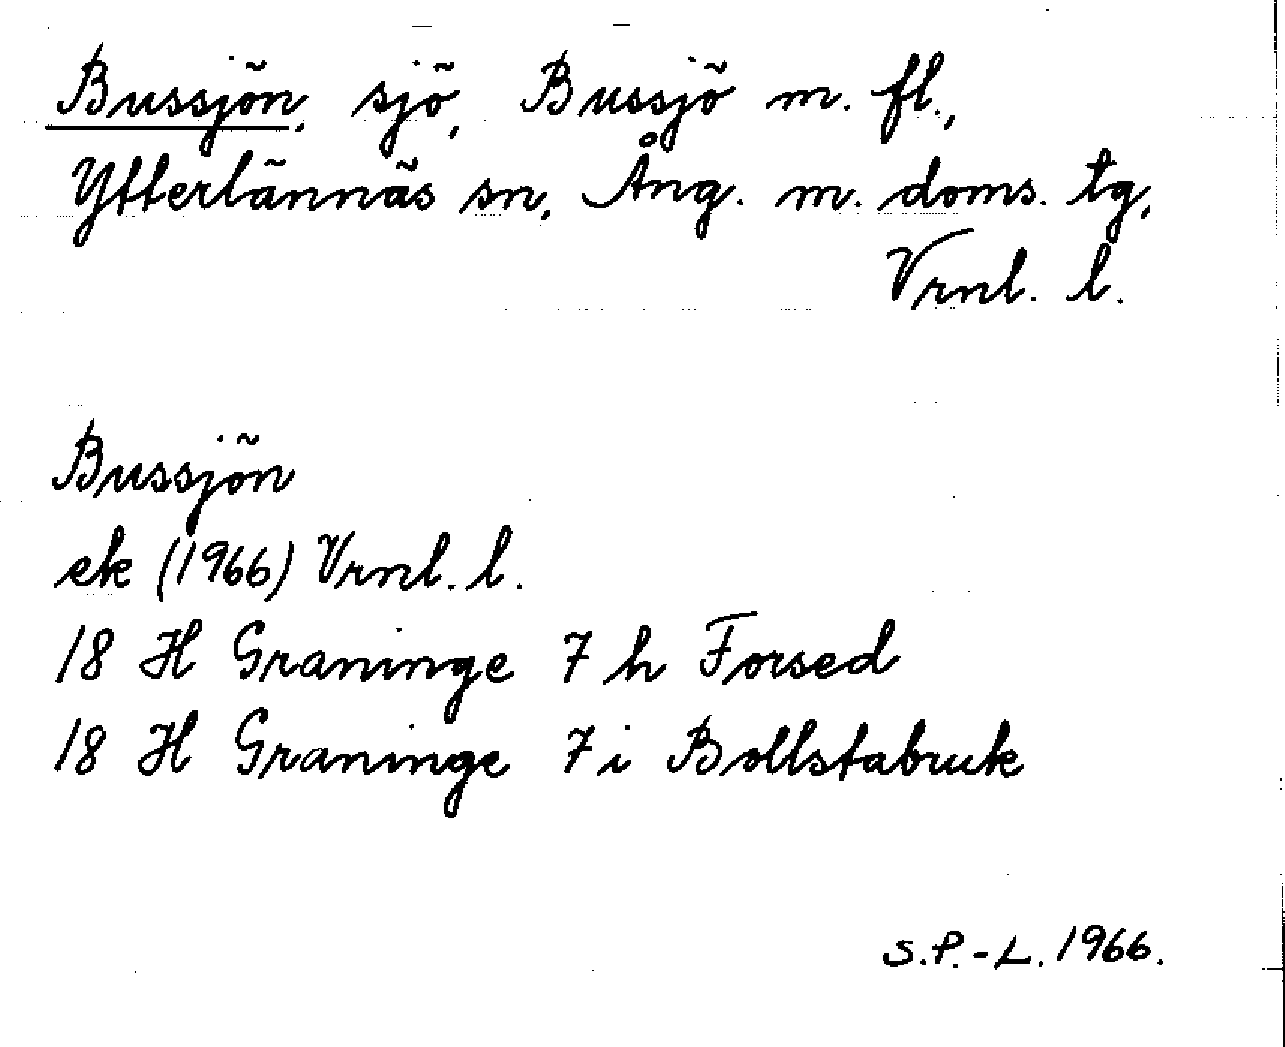 Bussjön, sjö, Bussjö m. fl.,
Ytterlännäs sn, Ång. m. doms. tg,
Vrnl. l.
Bussjön
ek (1966) Vrnl. l.
18 H Graninge 7 h Forsed
18 H Graninge 7 i Bollstabruk
S.P.-L. 1966.